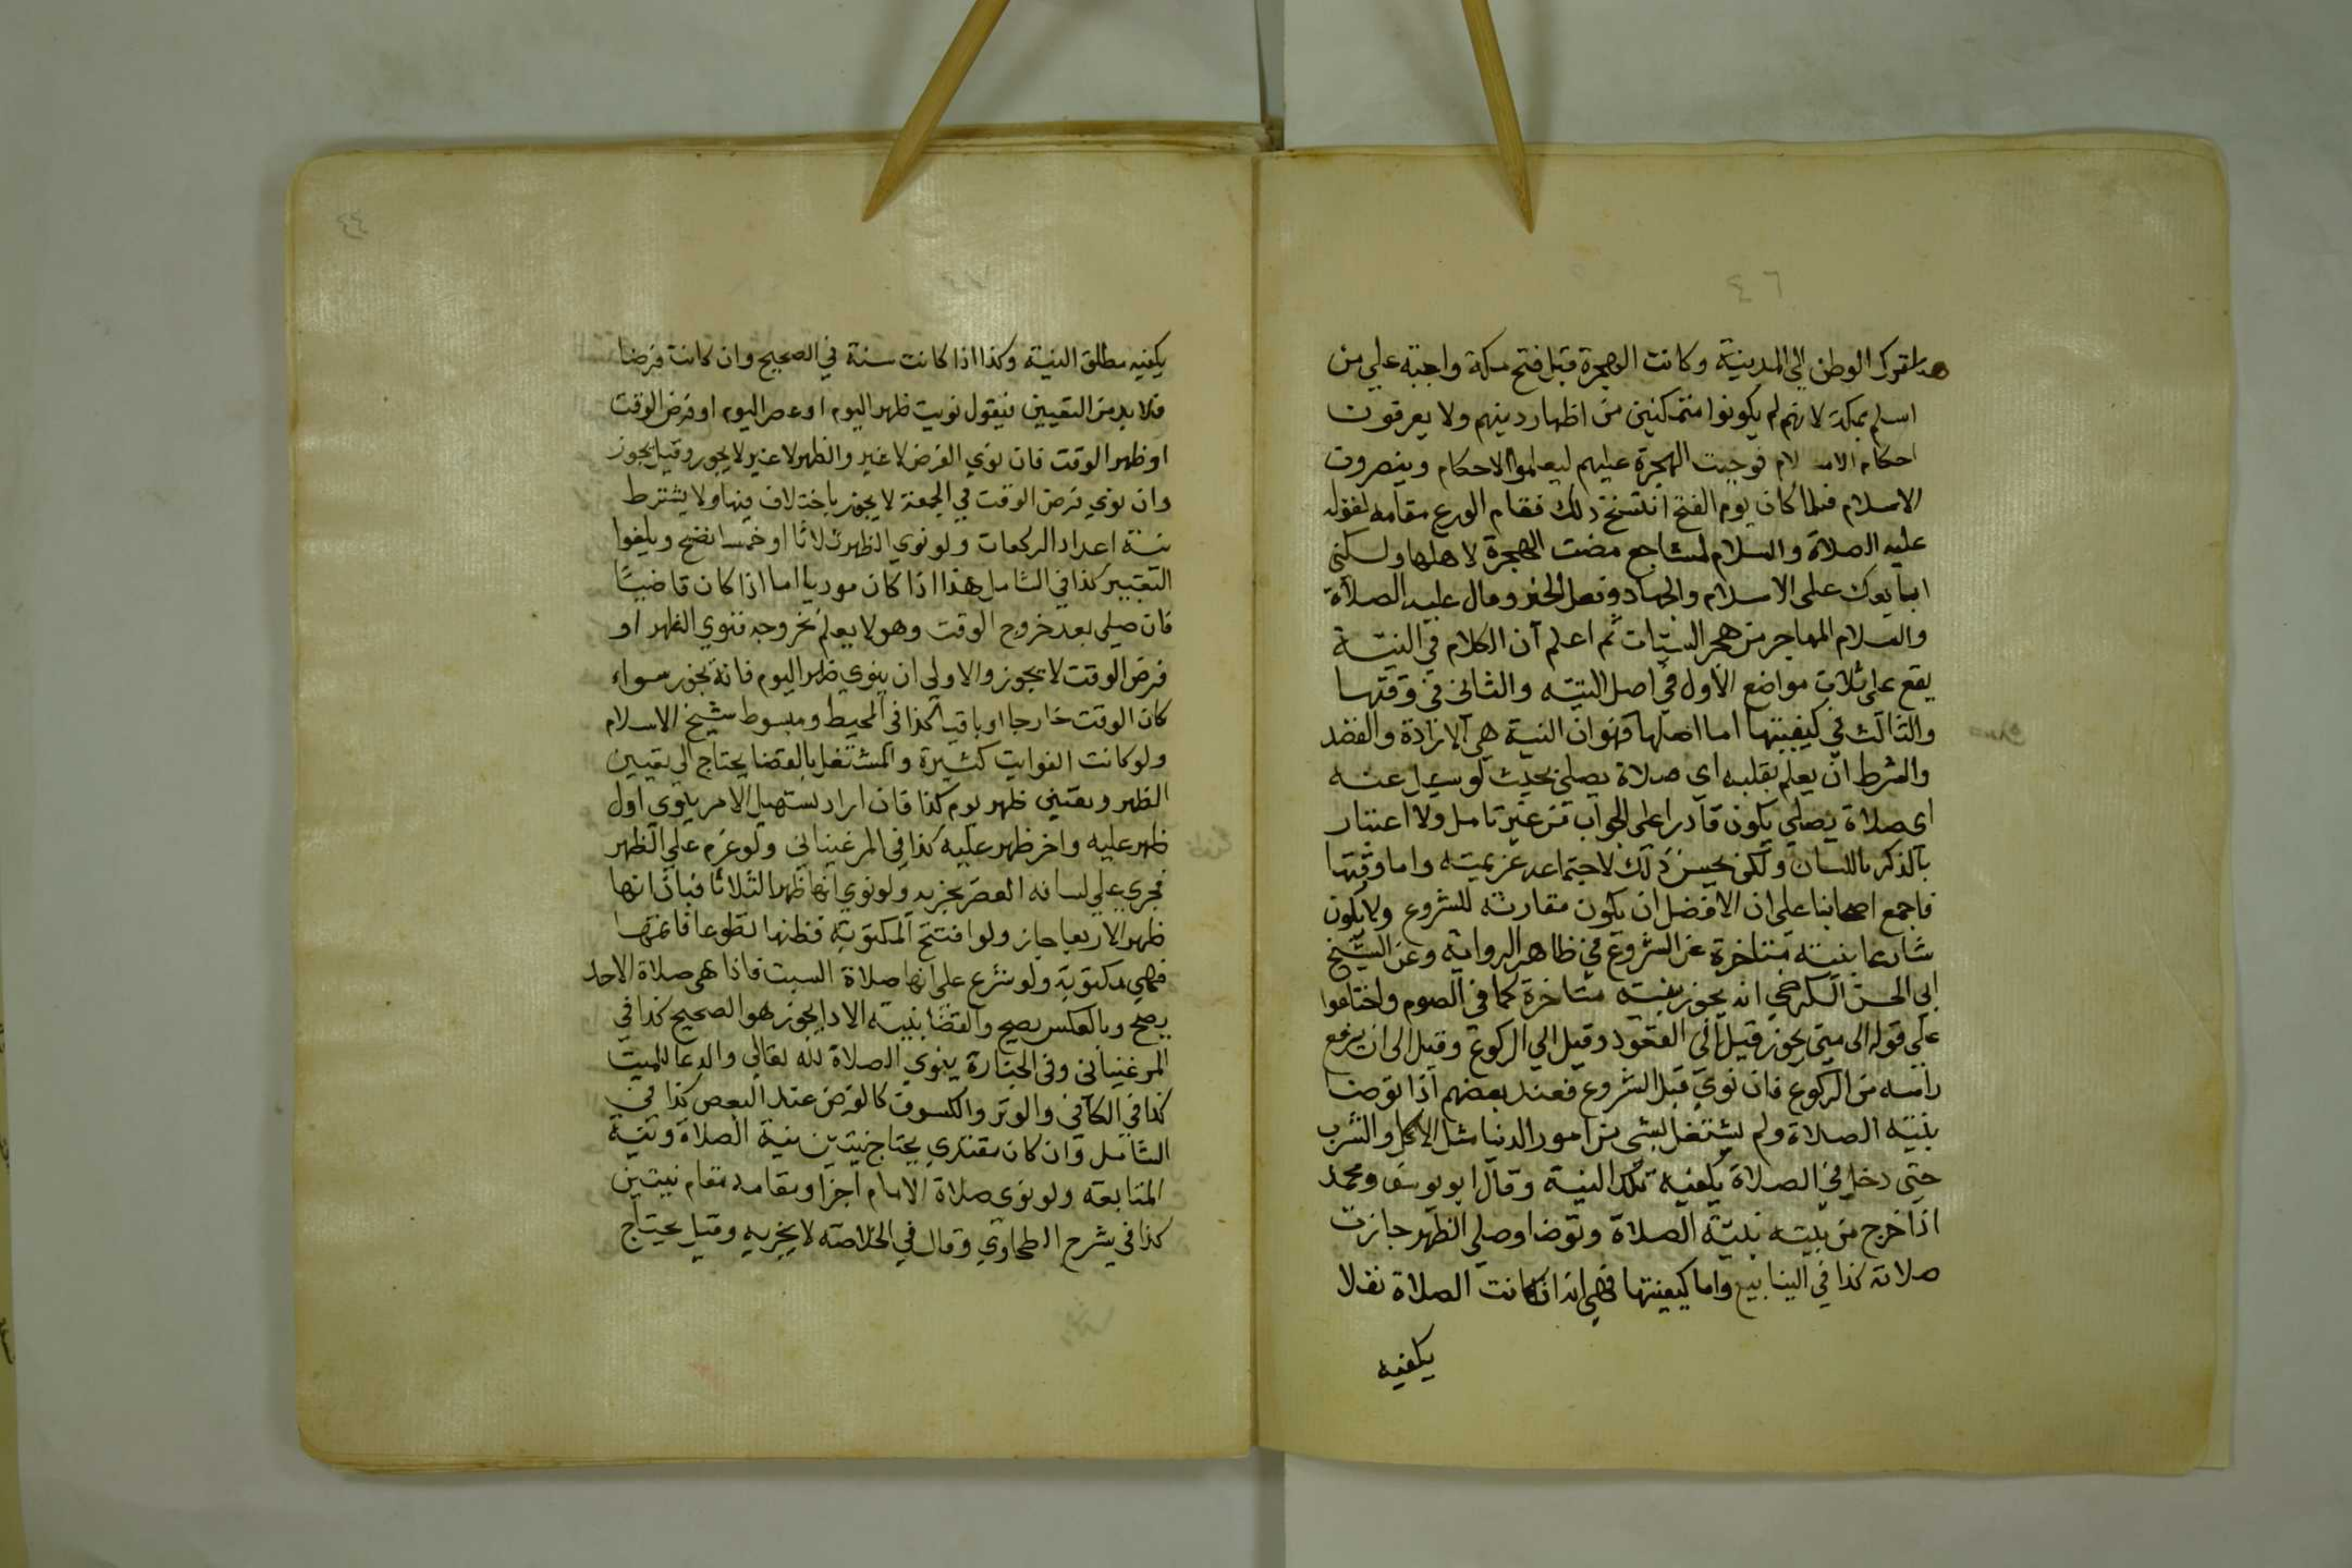 ٤٦
الوطن الي المدينة وكانت الهجرة قبل فتح مكة واجبة علي من
اسلم بمكة لانهم لم يكونوا متمكنين من اظهار دينهم ولا يعرفون
احكام الاسلام فوجبت الهجرة عليهم ليعلموا الاحكام وينصرون
الاسلام فلما كان يوم الفتح انتسخ ذلك فقام الورع مقامه لقوله
عليه الصلاة والسلام لمشاجع مضت الهجرة لاهلها ولكني
ابايعك على الاسلام والجهاد وفعل الخير وقال عليه الصلاة
والسلام المهاجر من هجر السيئات ثم اعلم ان الكلام في النية
يقع على ثلاث مواضع الاول في اصل النية والثاني في وقتها
والثالث في كيفيتها اما اصلها فهو ان النية هي الارادة والقصد
والشرط ان يعلم بقلبه اي صلاة يصلي بحيث لو سيل عنه
اي صلاة يصلي يكون قادرا على الجواب من غير تامل ولا اعتبار
بالذكر باللسان ولكن يحسن ذلك لاجتماعه عزيمته واما وقتها
فاجمع اصحابنا على ان الافضل ان يكون مقارنة للشروع ولا يكون
شارعا بنية متاخرة عن الشروع في ظاهر الرواية وعن الشيخ
ابي الحسن الكرخي انه يجوز بنية متاخرة كما في الصوم واختلفوا
علي قوله الى متى يجوز قيل الي القعود وقيل الي الركوع وقيل الى ان يرفع
راسه من الركوع فان نوي قبل الشروع فعند بعضهم اذا توضا
بنية الصلاة ولم يشتغل بشي من امور الدنيا مثل الاكل والشرب
حتى دخل في الصلاة يكفيه تلك النية وقال ابو يوسف ومحمد
اذا خرج من بيته بنية الصلاة وتوضا وصلي الظهر جازت
صلاته كذا في الينابيع واما كيفيتها فهي انه ان كانت الصلاة نفلا
يكفيه
٤٤
يكفيه مطلق النية وكذا اذا كانت سنة في الصحيح وان كانت فرضا
فلا بد من التعيين فيقول نويت ظهر اليوم او عصر اليوم او فرض الوقت
او ظهر الوقت فان نوي الفرض لا غير والظهر لا غير لا يجوز وقيل يجوز
وان نوي فرض الوقت في الجمعة لا يجوز باختلاف فيها ولا يشترط
نية اعداد الركعات ولو نوي الظهر ثلاثا او خمسا تصح ويلغوا
التعيير كذا في الشامل هذا اذا كان موديا اما اذا كان قاضيا
فان صلى بعد خروج الوقت وهو لا يعلم بخروجه فنوي الظهر او
فرض الوقت لا يجوز والاولى ان ينوي ظهر اليوم فانه يجوز سواء
كان الوقت خارجا او باقيا كذا في المحيط ومبسوط شيخ الاسلام
ولو كانت الفوايت كثيرة والمشتغل بالقضا يحتاج الى تعيين
الظهر وتعيين ظهر يوم كذا فان اراد تسهيل الامر ينوي اول
ظهر عليه واخر ظهر عليه كذا في المرغيناني ولو عزم علي الظهر
فجري علي لسانه العصر يجزيه ولو نوي انها ظهر الثلاثا فبان انها
ظهر الاربعا جاز ولو افتتح المكتوبة فظنها تطوعا فاتمها
فهي مكتوبة ولو شرع على انها صلاة السبت فاذا هى صلاة الاحد
يصح وبالعكس يصح والقضا بنية الادا يجوز هو الصحيح كذا في
المرغيناني وفي الجنازة ينوي الصلاة لله تعالى والدعا للميت
كذا في الكافي والوتر والكسوف كالفرض عند البعض كذا في
الشامل وان كان مقتدي يحتاج نيتين نية الصلاة ونية
المتابعة ولو نوى صلاة الامام اجزا ومقامه مقام نيتين
كذا في شرح الطحاوي وقال في الخلاصة لا يجزيه وقيل يحتاج